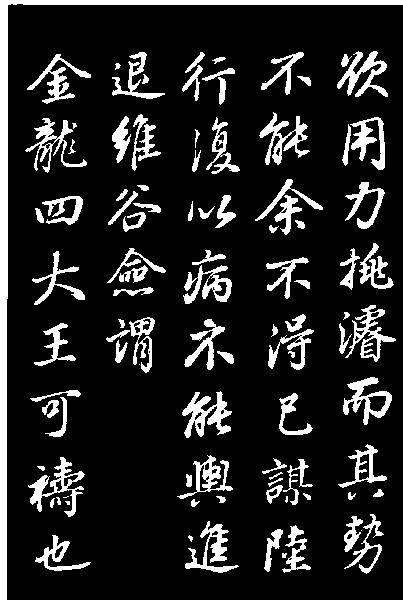 欲用力挑濬而其勢
不能余不得已謀陸
行復以病不能輿進
退維谷僉謂
金龍四大王可禱也